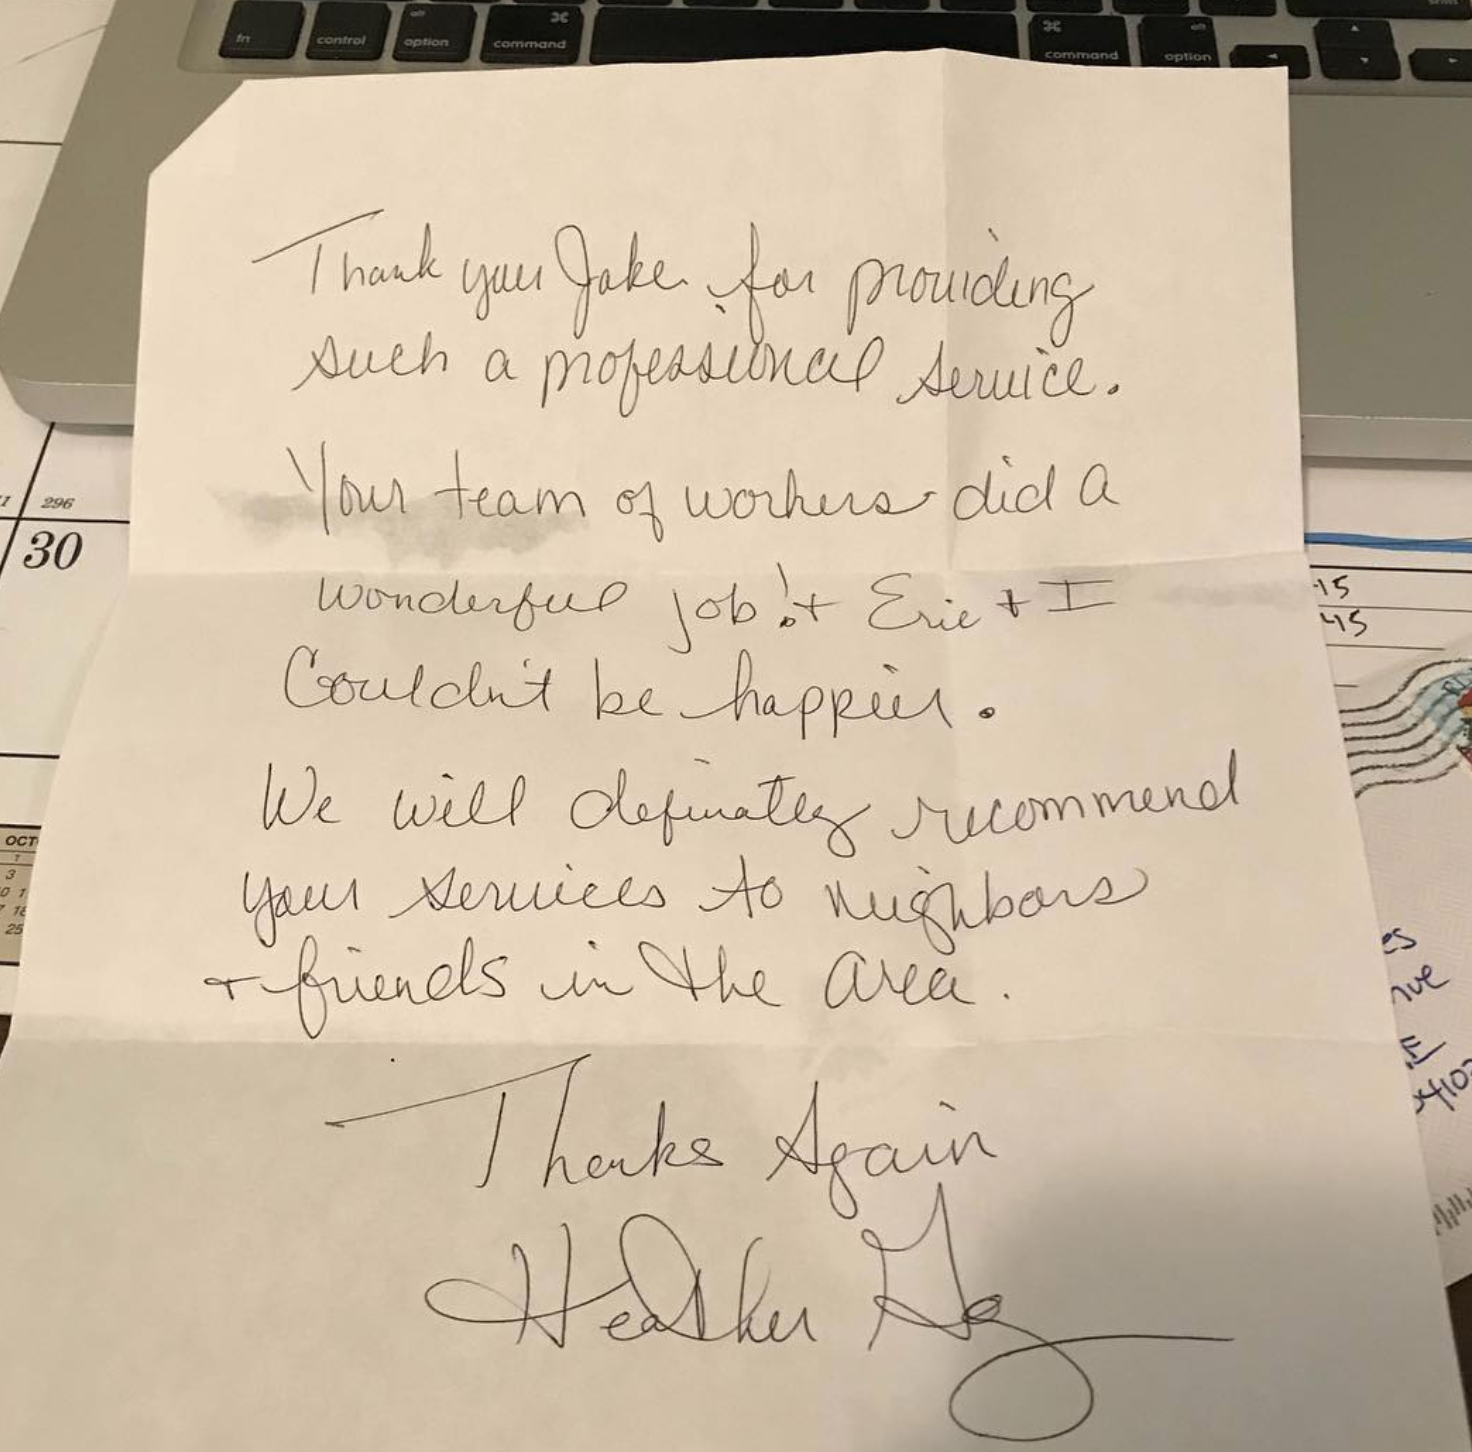 fn
control
alt
option
⌘
command
⌘
command
alt
option
Thank you Jake for providing
such a professional service.
Your team of workers did a
wonderful job! + Eric + I
Couldn't be happier.
We will definately recommend
your services to neighbors
+ friends in the area.
Thanks Again
Heather
296
30
15
45
OCT
T
3
10 1
7 18
25
es
ve